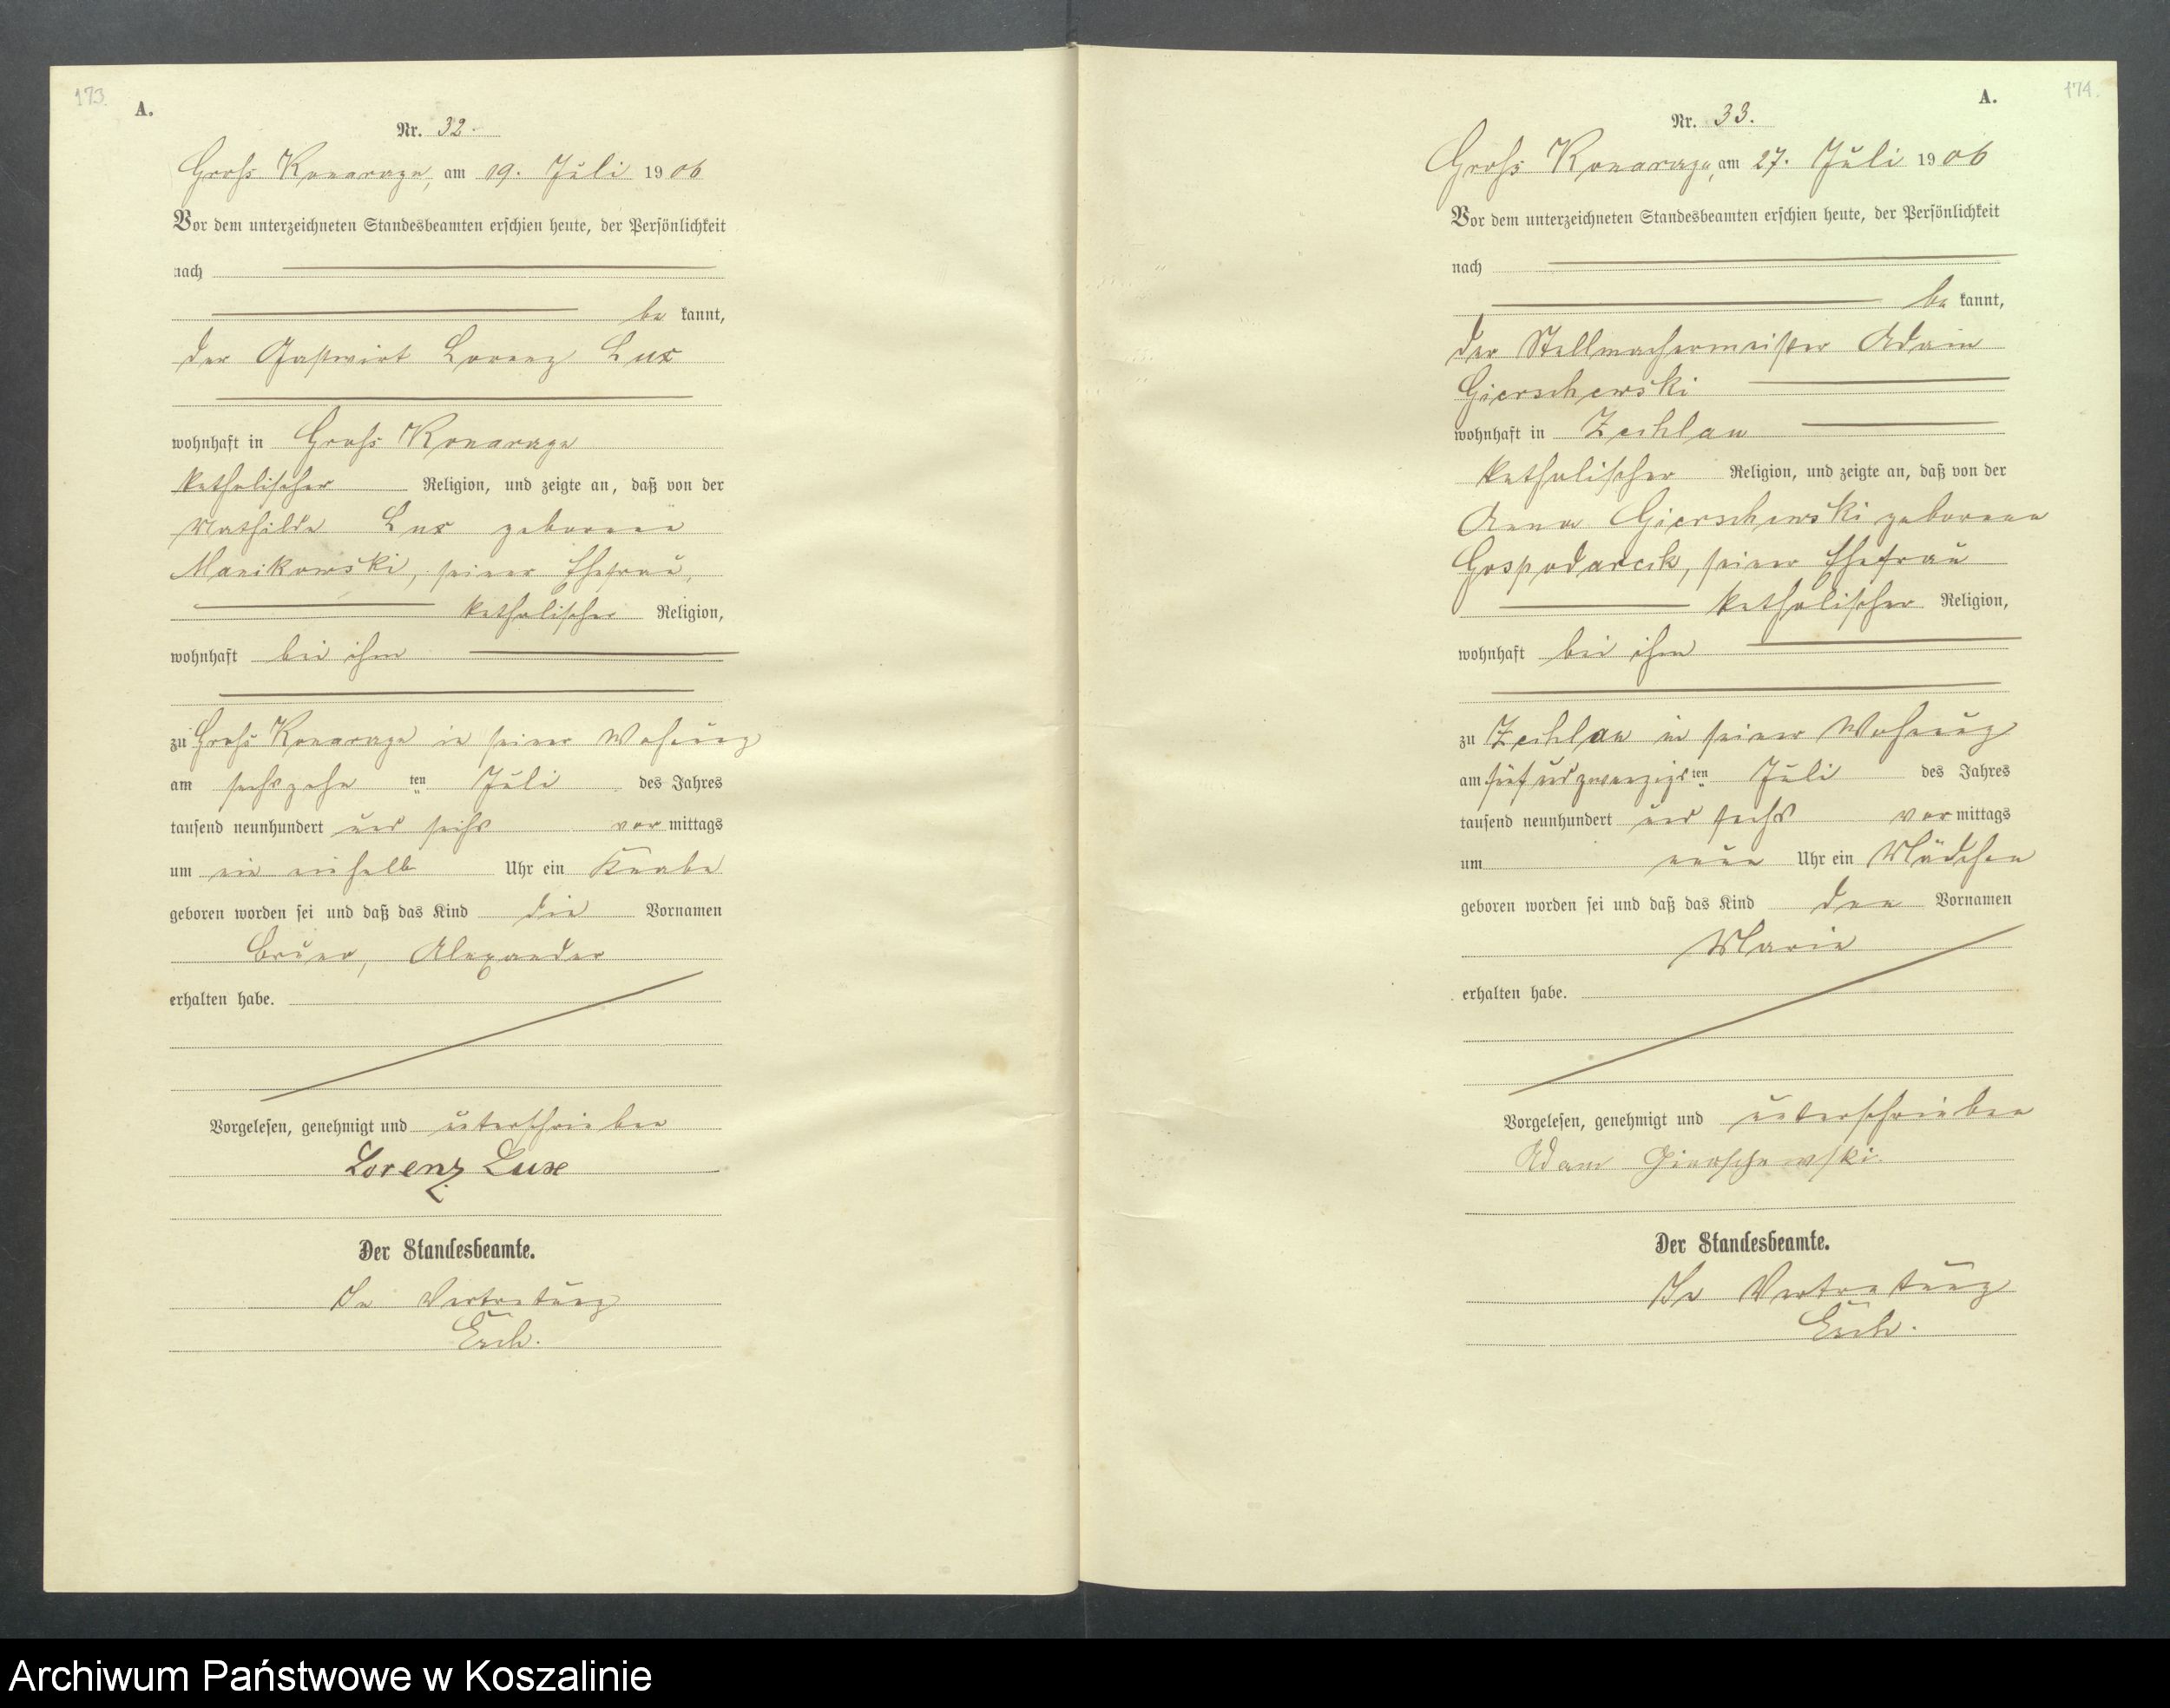 173.
A.
Nr. 32.
Gross Konarzyn, am 19. Juli 1906
Vor dem unterzeichneten Standesbeamten erschien heute, der Persönlichkeit
nach
be kannt,
der Gastwirt Lorenz Lux
wohnhaft in Gross Konarzyn
katholischer Religion, und zeigte an, daß von der
Mathilde Lux geborene
Manikowski, seiner Ehefrau,
katholischer Religion,
wohnhaft bei ihm
zu Gross Konarzyn in seiner Wohnung
am sechszehn ten Juli des Jahres
tausend neunhundert und sechs vor mittags
um ein einhalb Uhr ein Knabe
geboren worden sei und daß das Kind die Vornamen
Bruno, Alexander
erhalten habe.
Vorgelesen, genehmigt und unterschrieben
Lorenz Lux
Der Standesbeamte.
In Vertretung
174.
A.
Nr. 33.
Gross Konarzyn, am 27. Juli 1906
Vor dem unterzeichneten Standesbeamten erschien heute, der Persönlichkeit
nach
be kannt,
der Stellmachermeister Adam
Gierschewski
wohnhaft in Zechlau
katholischer Religion, und zeigte an, daß von der
Anna Gierschewski geborene
Gospodarek, seiner Ehefrau
katholischer Religion,
wohnhaft bei ihm
zu Zechlau in seiner Wohnung
am fünfundzwanzigsten Juli des Jahres
tausend neunhundert und sechs vor mittags
um neun Uhr ein Mädchen
geboren worden sei und daß das Kind den Vornamen
Marie
erhalten habe.
Vorgelesen, genehmigt und unterschrieben
Adam Gierschewski.
Der Standesbeamte.
In Vertretung
Archiwum Państwowe w Koszalinie